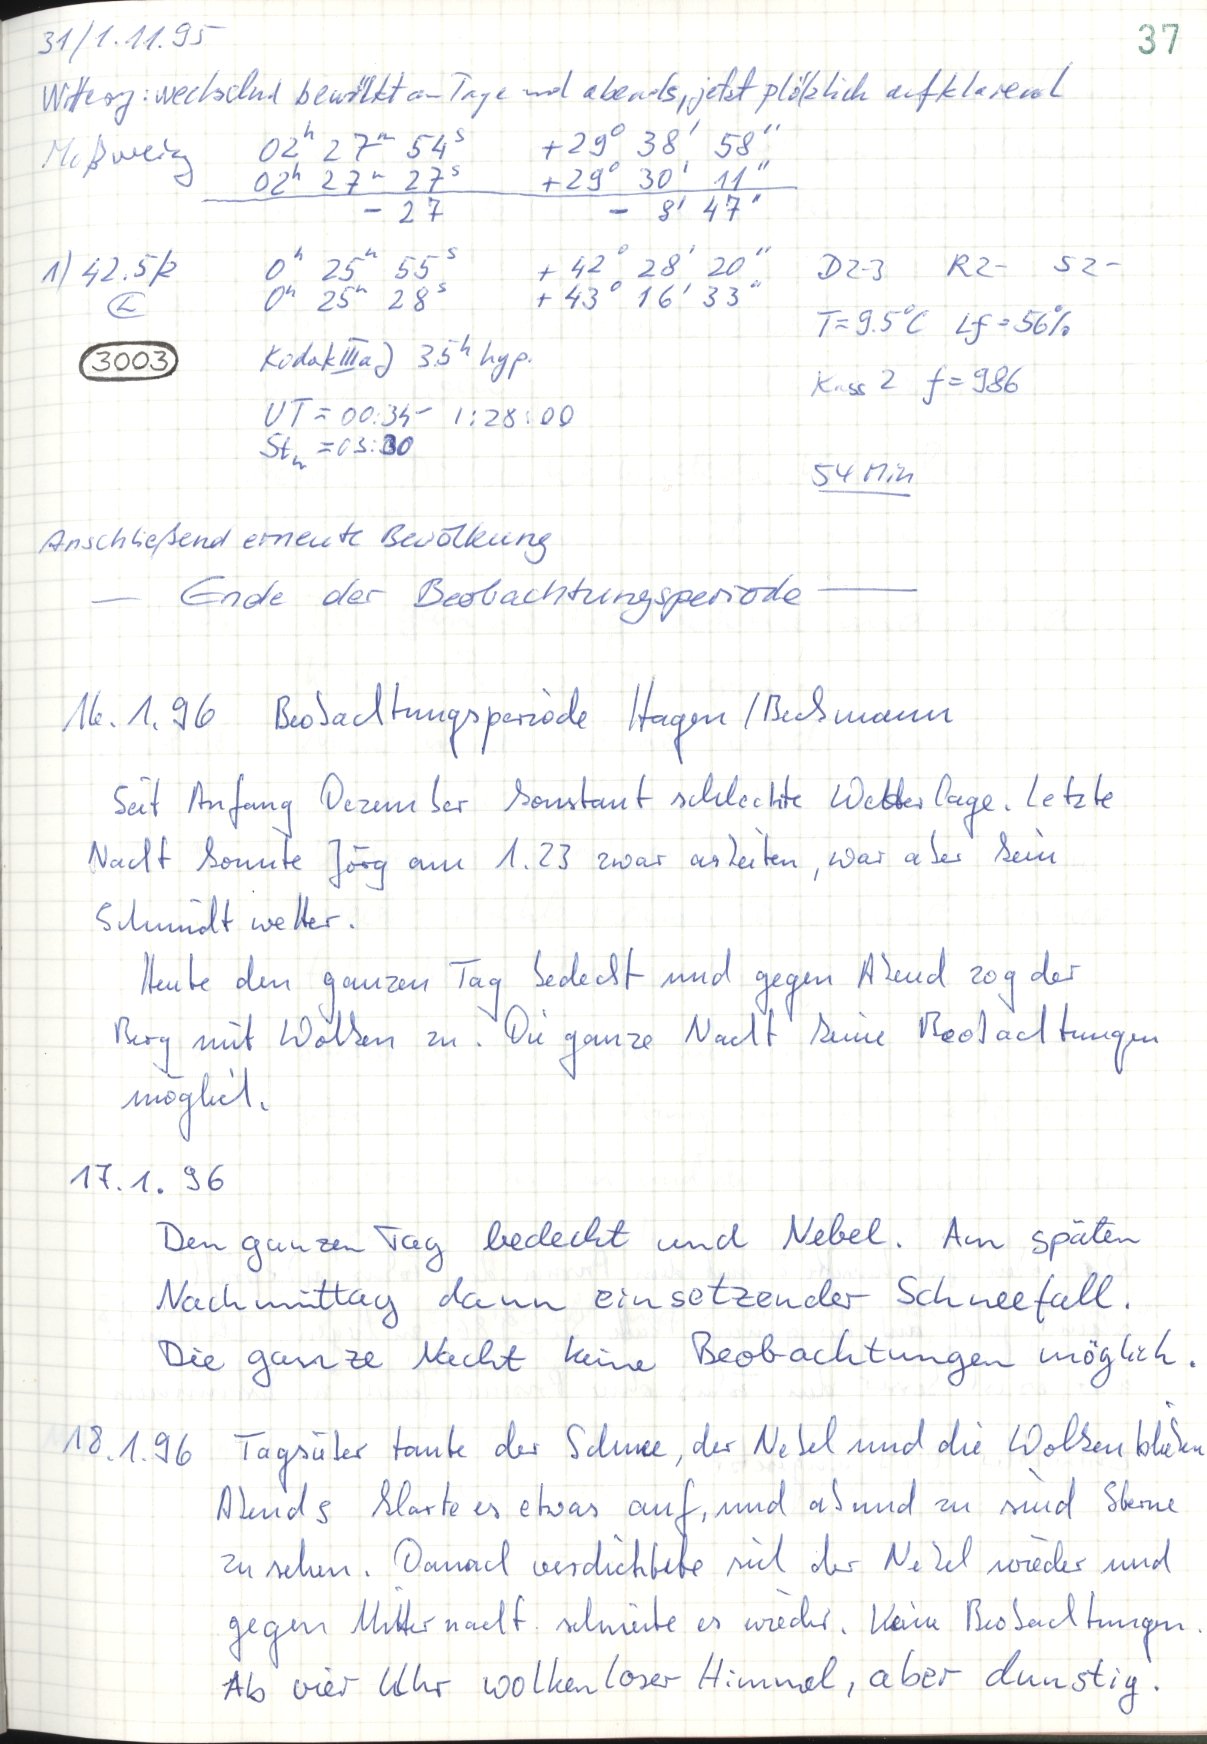 37
31/1.11.95
Witterung: wechselnd bewölkt am Tage und abends, jetzt plötzlich aufklarend
02h 27m 54s +29° 38' 58"
02h 27m 27s +29° 30' 11"
- 27 - 8' 47"
1) 42.5/2 0h 25m 55s + 42° 28' 20" D2-3 R2- S2-
0h 25m 28s + 43° 16' 33"
T=9.5°C Lf=56%
3003 Kodak IIIaJ 3.5h hyp.
Kass 2 f=986
UT=00:34- 1:28:00
=03:30
54 Min
Anschließend erneute Bewölkung
— Ende der Beobachtungsperiode —
16.1.96 Beobachtungsperiode Hagen/Beckmann
Seit Anfang Dezember konstant schlechte Wetterlage. Letzte
Nacht konnte Jörg am 1.23 zwar arbeiten, war aber kein
Schmidtwetter.
Heute den ganzen Tag bedeckt und gegen Abend zog der
Berg mit Wolken zu. Die ganze Nacht keine Beobachtungen
möglich.
17.1.96
Den ganzen Tag bedeckt und Nebel. Am späten
Nachmittag dann einsetzender Schneefall.
Die ganze Nacht keine Beobachtungen möglich.
18.1.96 Tagsüber taute der Schnee, der Nebel und die Wolken blieben
Abends klarte es etwas auf, und ab und zu sind Sterne
zu sehen. Danach verdichtete sich der Nebel wieder und
gegen Mitternacht schneite es wieder. Keine Beobachtungen.
Ab vier Uhr wolkenloser Himmel, aber dunstig.